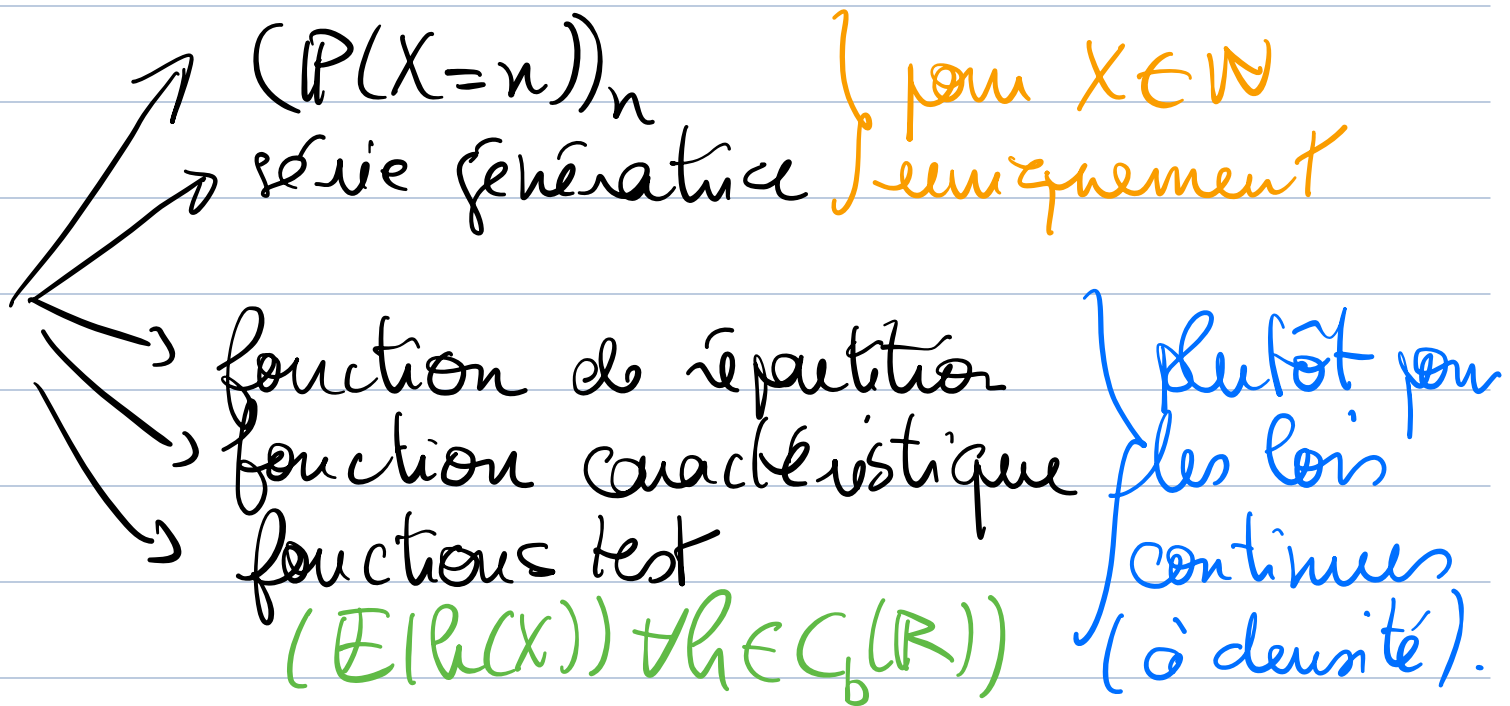 (ℙ(X=n))ₙ
série génératrice
pour X ∈ ℕ
uniquement
fonction de répartition
fonction caractéristique
fonctions test
(𝔼(h(X)) ∀h ∈ C_b(ℝ))
plutôt pour
les lois
continues
(à densité).